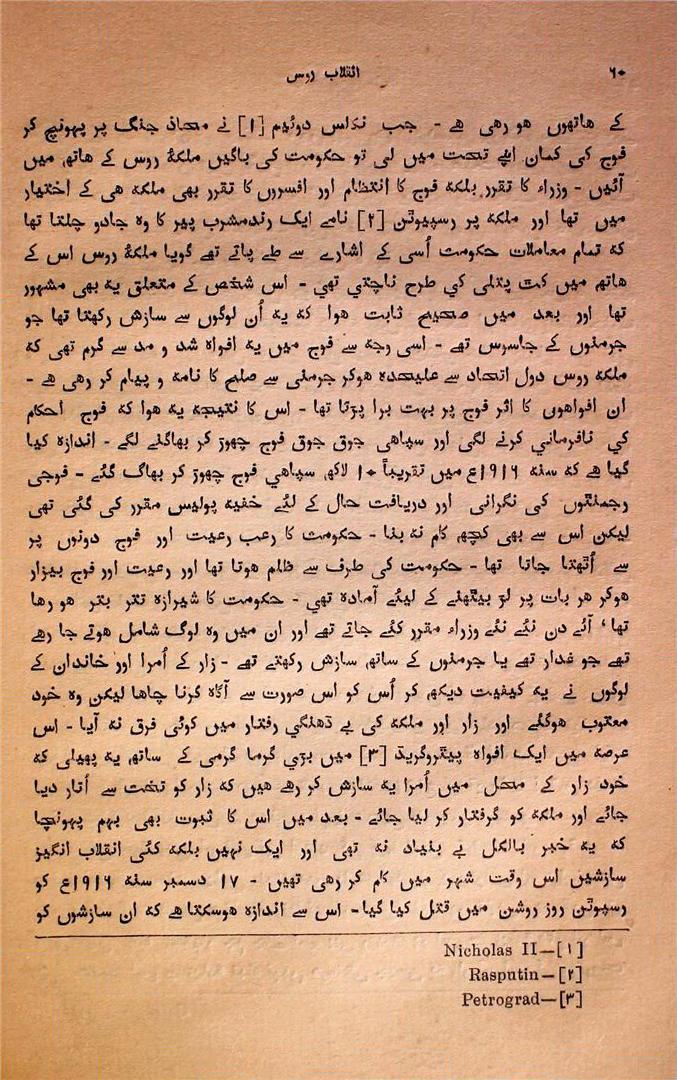 ۶۰
انقلاب روس
کے ھاتھوں ھو رھی ھے - جب نکلس دوئیم [۱] نے محاذ جنگ پر پہونچ کر
فوج کی کمان اپنے تحت میں لی تو حکومت کی باگیں ملکۂ روس کے ھاتھ میں
آئیں - وزراء کا تقرر بلکہ فوج کا انتظام اور افسروں کا تقرر بھی ملکہ ھی کے اختیار
میں تھا اور ملکہ پر رسپوٹن [۲] نامے ایک رندمشرب پیر کا وہ جادو چلتا تھا
کہ تمام معاملات حکومت اُسی کے اشارے سے طے پاتے تھے گویا ملکۂ روس اس کے
ھاتھ میں کٹ پتلی کي طرح ناچتي تھي - اس شخص کے متعلق یہ بھی مشہور
تھا اور بعد میں صحیح ثابت ھوا کہ یہ اُن لوگوں سے سازش رکھتا تھا جو
جرمنوں کے جاسوس تھے - اسی وجہ سے فوج میں یہ افواہ شد و مد سے گرم تھی کہ
ملکۂ روس دول اتحاد سے علیحدہ ھوکر جرمنی سے صلح کا نامہ و پیام کر رھی ھے -
ان افواھوں کا اثر فوج پر بہت برا پڑتا تھا - اس کا نتیجہ یہ ھوا کہ فوج احکام
کي نافرماني کرنے لگی اور سپاھی جوق جوق فوج چھوڑ کر بھاگنے لگے - اندازہ کیا
گیا ھے کہ سنہ ۱۹۱۶ع میں تقریباً ۱۰ لاکھ سپاھي فوج چھوڑ کر بھاگ گئے - فوجی
رجمنٹوں کی نگرانی اور دریافت حال کے لئے خفیہ پولیس مقرر کی گئی تھی
لیکن اس سے بھی کچھ کام نہ بنا - حکومت کا رعب رعیت اور فوج دونوں پر
سے اُٹھتا جاتا تھا - حکومت کی طرف سے ظلم ھوتا تھا اور رعیت اور فوج بیزار
ھوکر ھر بات پر لڑ بیٹھنے کے لیئے آمادہ تھي - حکومت کا شیرازہ تتر بتر ھو رھا
تھا، آئے دن نئے نئے وزراء مقرر کئے جاتے تھے اور ان میں وہ لوگ شامل ھوتے جا رھے
تھے جو غدار تھے یا جرمنوں کے ساتھ سازش رکھتے تھے - زار کے اُمرا اور خاندان کے
لوگوں نے یہ کیفیت دیکھ کر اُس کو اس صورت سے آگاہ کرنا چاھا لیکن وہ خود
معتوب ھوگئے اور زار اور ملکہ کی بے ڈھنگي رفتار میں کوئی فرق نہ آیا - اس
عرصہ میں ایک افواہ پیٹروگریڈ [۳] میں بڑي گرما گرمی کے ساتھ یہ پھیلی کہ
خود زار کے محل میں اُمرا یہ سازش کر رھے ھیں کہ زار کو تخت سے اُتار دیا
جائے اور ملکہ کو گرفتار کر لیا جائے - بعد میں اس کا ثبوت بھی بہم پہونچا
کہ یہ خبر بالکل بے بنیاد نہ تھی اور ایک نہیں بلکہ کئی انقلاب انگیز
سازشیں اس وقت شہر میں کام کر رھی تھیں - ۱۷ دسمبر سنہ ۱۹۱۶ع کو
رسپوٹن روز روشن میں قتل کیا گیا - اس سے اندازہ ھوسکتا ھے کہ ان سازشوں کو
Nicholas II—[۱]
Rasputin—[۲]
Petrograd—[۳]